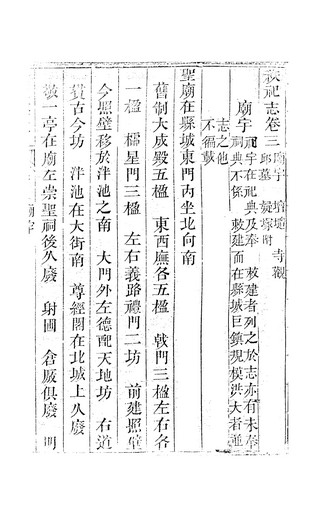 秩祀志卷三 廟宇 壇壝 寺觀
邱墓 義塚附
廟宇 祠宇在祀典及奉 敕建者列之於志亦有未奉
祠典不係 敕建而在縣城巨鎮規模洪大者並
志之他
不徧載
聖廟在縣城東門內坐北向南
舊制大成殿五楹 東西廡各五楹 戟門三楹左右各
一楹 櫺星門三楹 左右義路禮門二坊 前建照壁
今照壁移於泮池之南 大門外左德配天地坊 右道
貫古今坊 泮池在大街南 尊經閣在北城上久廢
敬一亭在廟左崇聖祠後久廢 射圃 倉廒俱廢 明